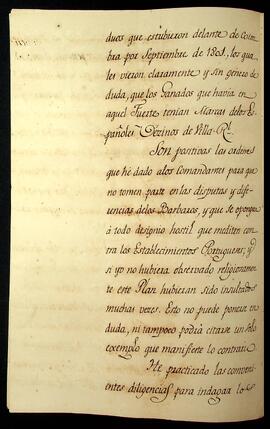 duos que estubieron delante de Coim
bra por Septiembre de 1801, los qua
les vieron claramente y sin genero de
duda, que los Ganados que havia en
aquel Fuerte tenian Marcas delos Es
pañoles Vezinos de Villa Rl.
Son positivas las ordenes
que hé dado alos Comandantes para que
no tomen parte en las disputas y dife
rencias delos Barbaros, y que se opongan
à todo designio hostil que mediten con
tra los Establecimientos Portugueses; y
si yo no hubiera observado religiosamen
te este Plan hubieran sido insultados
muchas veces. Esto no puede ponerse en
duda, ni tampoco podrà citarse un solo
exemplo que manifieste lo contrario.
He practicado las conveni
entes diligencias para indagar los